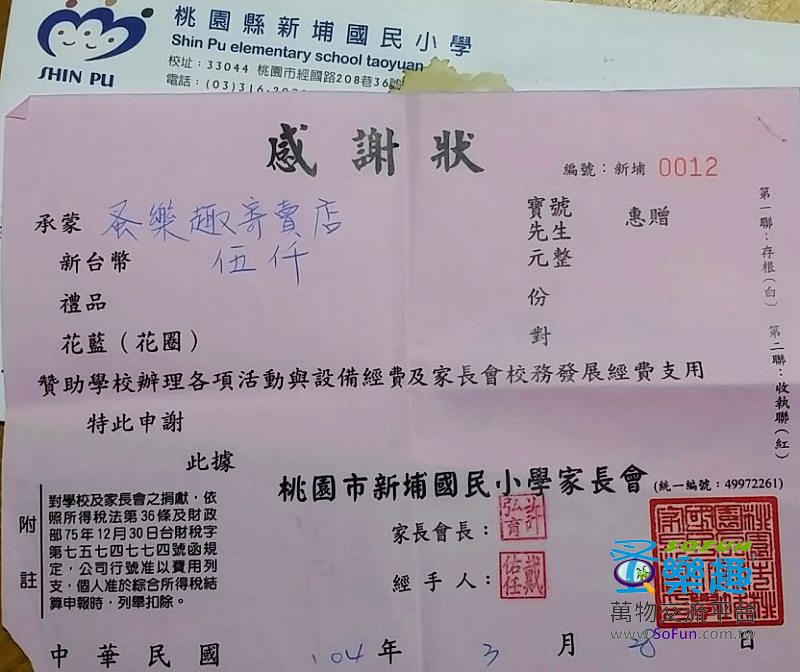 桃園縣新埔國民小學
Shin Pu elementary school taoyuan
SHIN PU
校址：33044 桃園市經國路208巷36號
電話：(03)316-
感謝狀
編號：新埔 0012
承蒙 蚤樂趣寄賣店 寶號 先生 惠贈
新台幣 伍仟 元整
禮品 份
花籃（花圈） 對
贊助學校辦理各項活動與設備經費及家長會校務發展經費支用
特此申謝
此據
桃園市新埔國民小學家長會(統一編號：49972261)
家長會長：許弘育
經手人：戴佑任
附註
對學校及家長會之捐獻，依
照所得稅法第36條及財政
部75年12月30日台財稅字
第七五七四七七四號函規
定，公司行號准以費用列
支，個人准於綜合所得稅結
算申報時，列舉扣除。
中華民國 104年 3月 日
第一聯：存根(白)
第二聯：收執聯(紅)
SOFUN
蚤樂趣
萬物交流平台
www.SoFun.com.tw